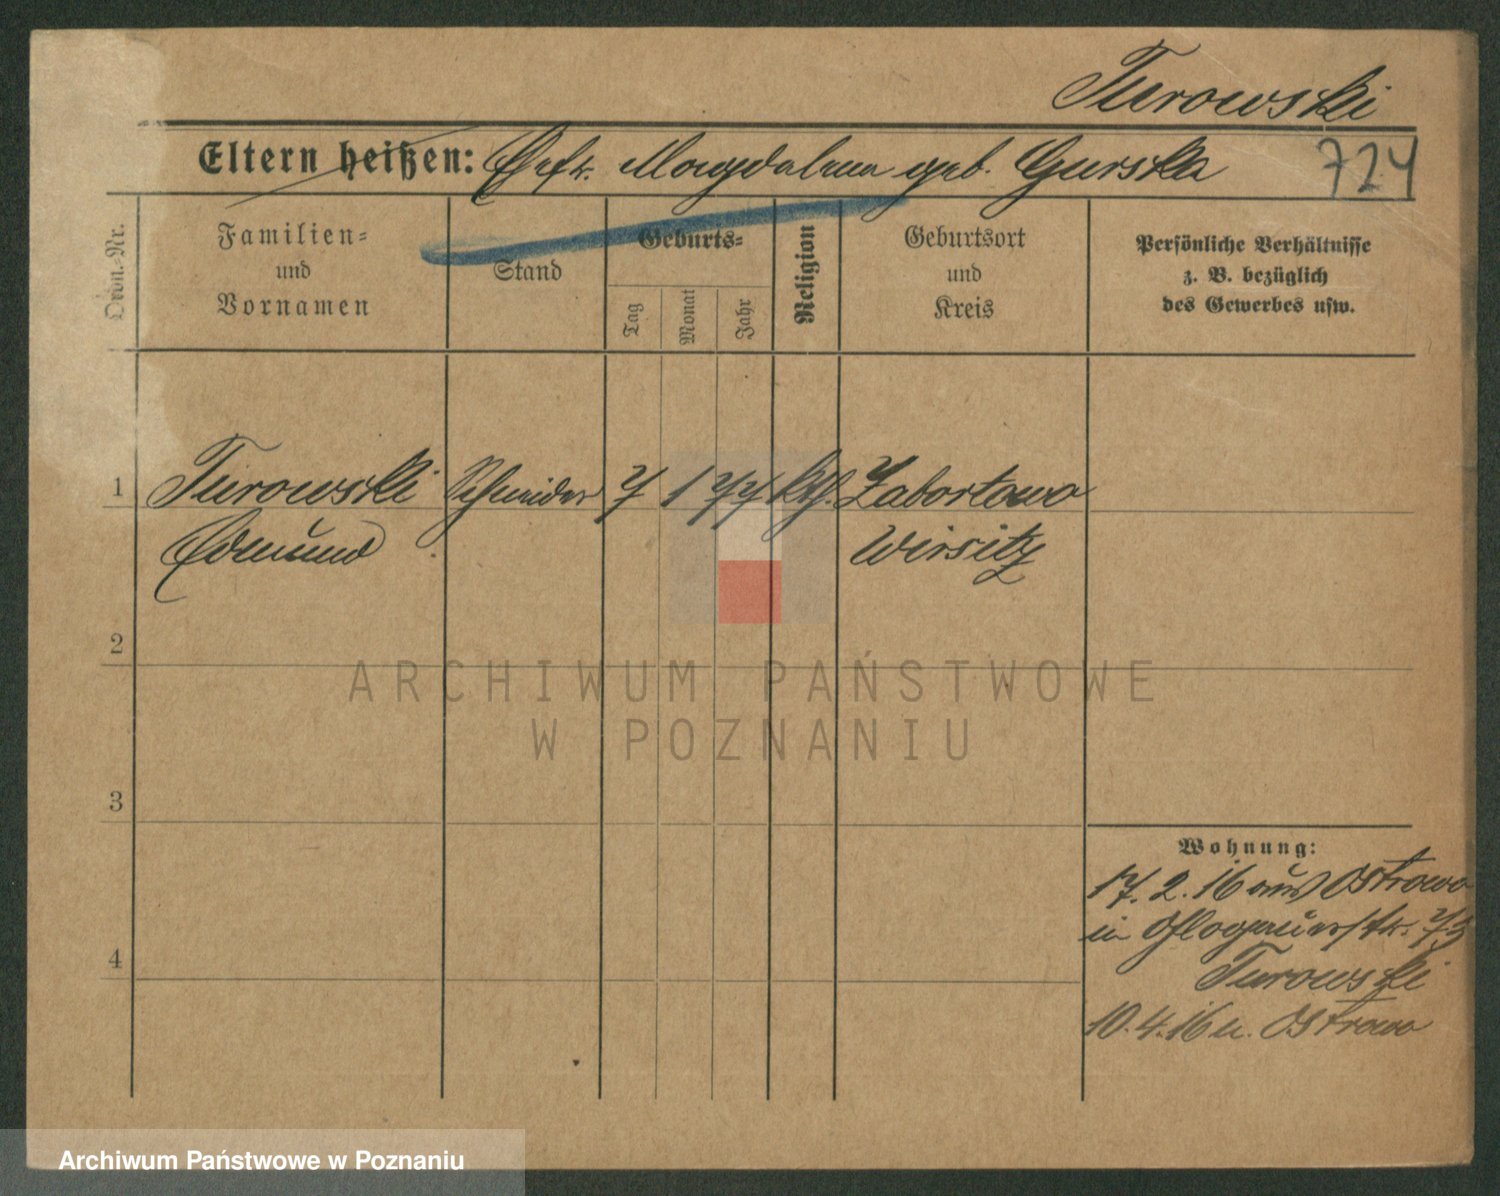 Turowski
Eltern heißen: Ehefr. Magdalena geb. Gurska 724
Ordn.-Nr.
Familien-
und
Vornamen
Stand
Geburts-
Tag
Monat
Jahr
Religion
Geburtsort
und
Kreis
Persönliche Verhältnisse
z. B. bezüglich
des Gewerbes usw.
1 Turowski Schneider 7 1 77 kth. Zabortowo
Edmund Wirsitz
2
3
4
Wohnung:
17. 2. 16 aus Ostrowo
in Glogauerstr. 73
Turowski
10. 4. 16 n. Ostrowo
ARCHIWUM PAŃSTWOWE
W POZNANIU
Archiwum Państwowe w Poznaniu